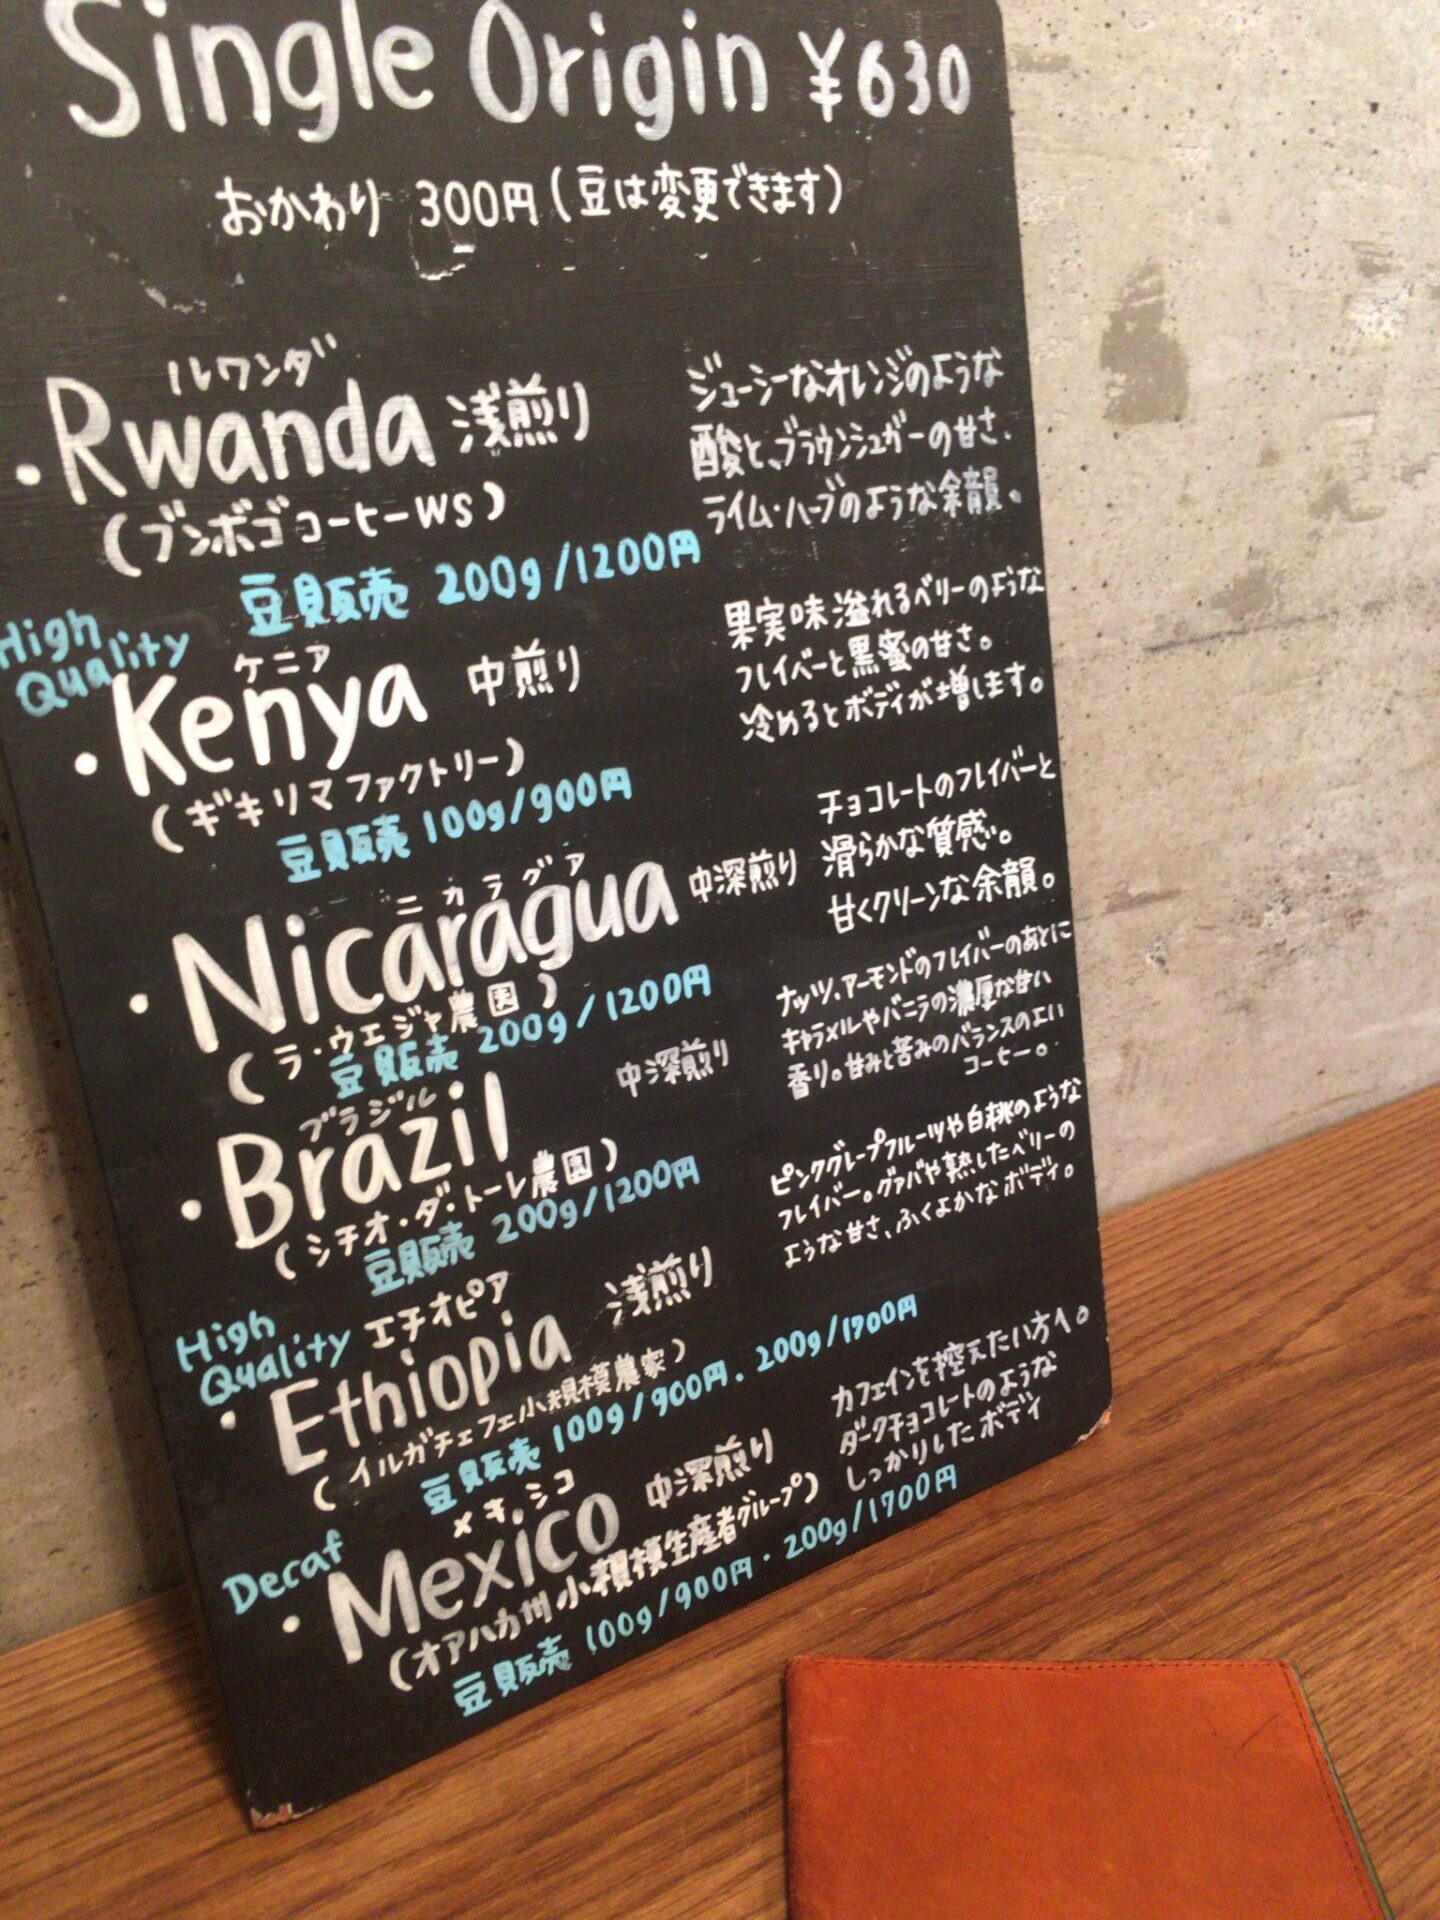 Single Origin ¥630
おかわり 300円(豆は変更できます)
ルワンダ
・Rwanda 浅煎り
(ブンボゴコーヒーWS)
豆販売 200g/1200円
ジューシーなオレンジのような
酸と、ブラウンシュガーの甘さ、
ライム・ハーブのような余韻。
High
Quality
ケニア
・Kenya 中煎り
(ギキリマファクトリー)
豆販売 100g/900円
果実味溢れるベリーのような
フレイバーと黒蜜の甘さ。
冷めるとボディが増します。
ニカラグア
・Nicaragua 中深煎り
(ラ・ウエジャ農園)
豆販売 200g/1200円
チョコレートのフレイバーと
滑らかな質感。
甘くクリーンな余韻。
ブラジル
・Brazil 中深煎り
(シチオ・ダ・トーレ農園)
豆販売 200g/1200円
ナッツ、アーモンドのフレイバーのあとに
キャラメルやバニラの濃厚な甘い
香り。甘みと苦みのバランスのよい
コーヒー。
High
Quality
エチオピア
・Ethiopia 浅煎り
(イルガチェフェ小規模農家)
豆販売 100g/900円. 200g/1700円
ピンクグレープフルーツや白桃のような
フレイバー。グァバや熟したベリーの
ような甘さ、ふくよかなボディ。
Decaf
メキシコ
・Mexico 中深煎り
(オアハカ州小規模生産者グループ)
豆販売 100g/900円・200g/1700円
カフェインを控えたい方へ。
ダークチョコレートのような
しっかりしたボディ